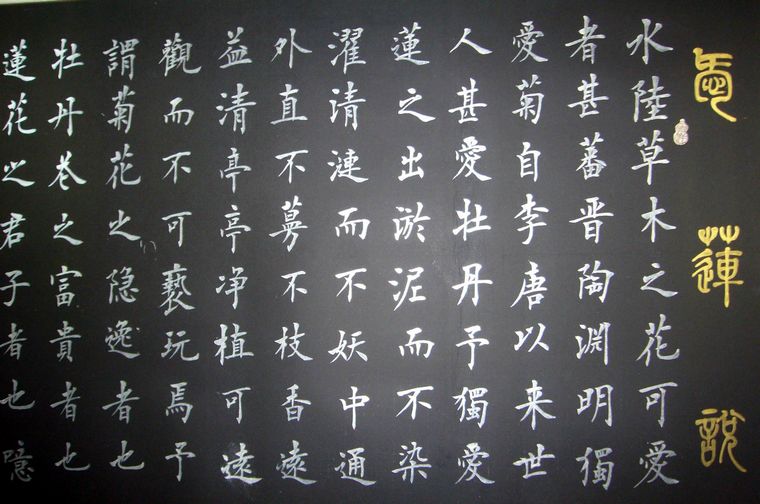 愛蓮說
水陸草木之花可愛
者甚蕃晋陶淵明獨
愛菊自李唐以来世
人甚愛牡丹予獨愛
蓮之出淤泥而不染
濯清漣而不妖中通
外直不蔓不枝香遠
益清亭亭净植可遠
觀而不可褻玩焉予
謂菊花之隐逸者也
牡丹花之富貴者也
蓮花之君子者也噫